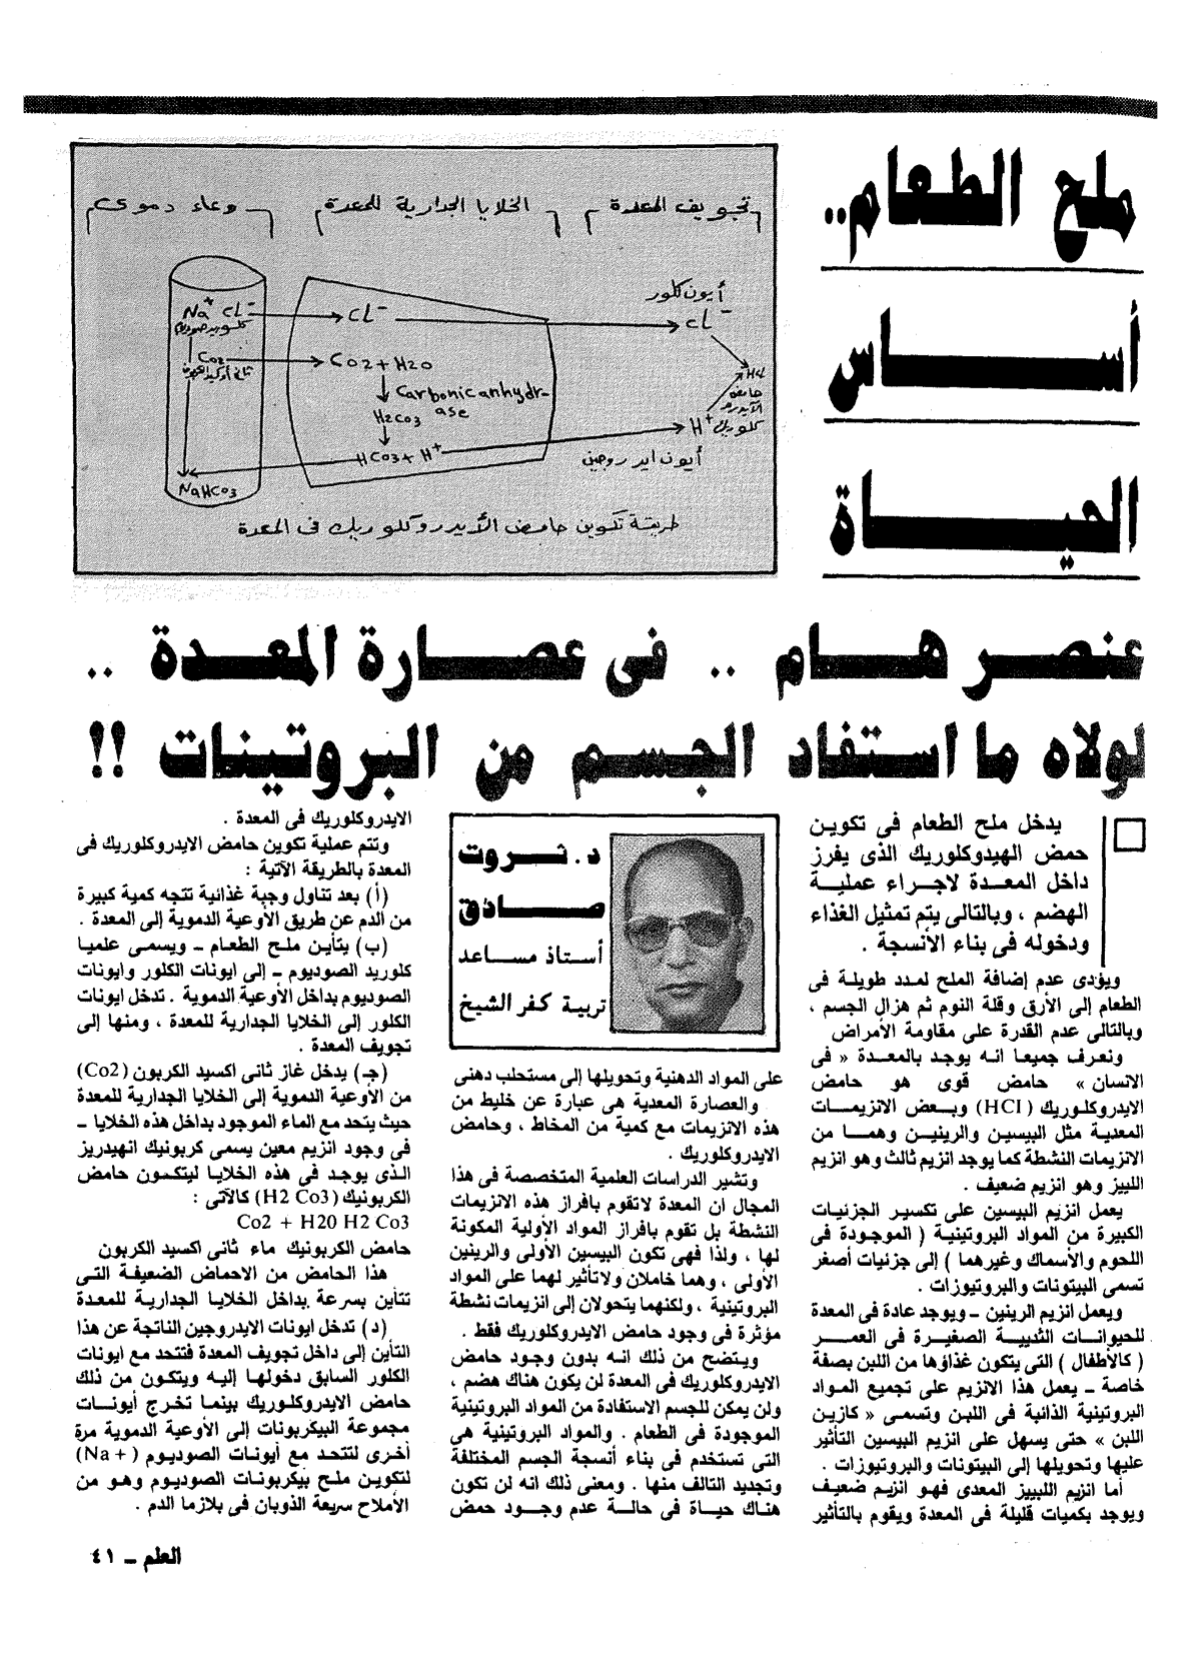 ملح الطعام..
أساس
الحياة
تجويف المعدة
الخلايا الجدارية للمعدة
وعاء دموى
أيون كلور
Na+ Cl-
كلوريد صوديوم
CL-
cL-
Co2
ثانى أوكسيد الكربون
CO2 + H2O
Carbonic anhydr-
ase
H2CO3
HCO3 + H+
H+
HCL
حامض
الأيدرو
كلوريك
أيون ايدروجين
NaHCO3
طريقة تكوين حامض الأيدروكلوريك فى المعدة
عنصر هام .. فى عصارة المعدة ..
لولاه ما استفاد الجسم من البروتينات !!
يدخل ملح الطعام فى تكوين
حمض الهيدوكلوريك الذى يفرز
داخل المعدة لاجراء عملية
الهضم ، وبالتالى يتم تمثيل الغذاء
ودخوله فى بناء الأنسجة .
ويؤدى عدم إضافة الملح لمدد طويلة فى
الطعام إلى الأرق وقلة النوم ثم هزال الجسم ،
وبالتالى عدم القدرة على مقاومة الأمراض
ونعرف جميعا انه يوجد بالمعدة « فى
الانسان » حامض قوى هو حامض
الايدروكلوريك ( HCI ) وبعض الانزيمات
المعدية مثل البيسين والرينين وهما من
الانزيمات النشطة كما يوجد انزيم ثالث وهو انزيم
الليبز وهو انزيم ضعيف .
يعمل انزيم البيسين على تكسير الجزئيات
الكبيرة من المواد البروتينية ( الموجودة فى
اللحوم والأسماك وغيرهما ) إلى جزئيات أصغر
تسمى البيتونات والبروتيوزات .
ويعمل انزيم الرينين ــ ويوجد عادة فى المعدة
للحيوانات الثديية الصغيرة فى العمر
( كالأطفال ) التى يتكون غذاؤها من اللبن بصفة
خاصة ــ يعمل هذا الانزيم على تجميع المواد
البروتينية الذائبة فى اللبن وتسمى « كازين
اللبن » حتى يسهل على انزيم البيسين التأثير
عليها وتحويلها إلى البيتونات والبروتيوزات .
أما انزيم الليبيز المعدى فهو انزيم ضعيف
ويوجد بكميات قليلة فى المعدة ويقوم بالتأثير
د. ثروت
صادق
أستاذ مساعد
تربية كفر الشيخ
على المواد الدهنية وتحويلها إلى مستحلب دهنى
والعصارة المعدية هى عبارة عن خليط من
هذه الانزيمات مع كمية من المخاط ، وحامض
الايدروكلوريك .
وتشير الدراسات العلمية المتخصصة فى هذا
المجال ان المعدة لاتقوم بافراز هذه الانزيمات
النشطة بل تقوم بافراز المواد الأولية المكونة
لها ، ولذا فهى تكون البيسين الأولى والرينين
الأولى ، وهما خاملان ولاتأثير لهما على المواد
البروتينية ، ولكنهما يتحولان إلى انزيمات نشطة
مؤثرة فى وجود حامض الايدروكلوريك فقط .
ويتضح من ذلك انه بدون وجود حامض
الايدروكلوريك فى المعدة لن يكون هناك هضم ،
ولن يمكن للجسم الاستفادة من المواد البروتينية
الموجودة فى الطعام . والمواد البروتينية هى
التى تستخدم فى بناء أنسجة الجسم المختلفة
وتجديد التالف منها . ومعنى ذلك انه لن تكون
هناك حياة فى حالة عدم وجود حمض
الايدروكلوريك فى المعدة .
وتتم عملية تكوين حامض الايدروكلوريك فى
المعدة بالطريقة الآتية :
(أ) بعد تناول وجبة غذائية تتجه كمية كبيرة
من الدم عن طريق الأوعية الدموية إلى المعدة .
(ب) يتأين ملح الطعام ــ ويسمى علميا
كلوريد الصوديوم ــ إلى ايونات الكلور وايونات
الصوديوم بداخل الأوعية الدموية . تدخل ايونات
الكلور إلى الخلايا الجدارية للمعدة ، ومنها إلى
تجويف المعدة .
(جـ) يدخل غاز ثانى اكسيد الكربون (Co2)
من الأوعية الدموية إلى الخلايا الجدارية للمعدة
حيث يتحد مع الماء الموجود بداخل هذه الخلايا ــ
فى وجود انزيم معين يسمى كربونيك انهيدريز
الذى يوجد فى هذه الخلايا ليتكون حامض
الكربونيك (H2 Co3) كالآتى :
Co2 + H20 H2 Co3
حامض الكربونيك ماء ثانى اكسيد الكربون
هذا الحامض من الاحماض الضعيفة التى
تتأين بسرعة بداخل الخلايا الجدارية للمعدة
(د) تدخل ايونات الايدروجين الناتجة عن هذا
التأين إلى داخل تجويف المعدة فتتحد مع ايونات
الكلور السابق دخولها إليه ويتكون من ذلك
حامض الايدروكلوريك بينما تخرج أيونات
مجموعة البيكربونات إلى الأوعية الدموية مرة
أخرى لتتحد مع أيونات الصوديوم ( + Na)
لتكوين ملح بيكربونات الصوديوم وهو من
الأملاح سريعة الذوبان فى بلازما الدم .
العلم ــ ٤١